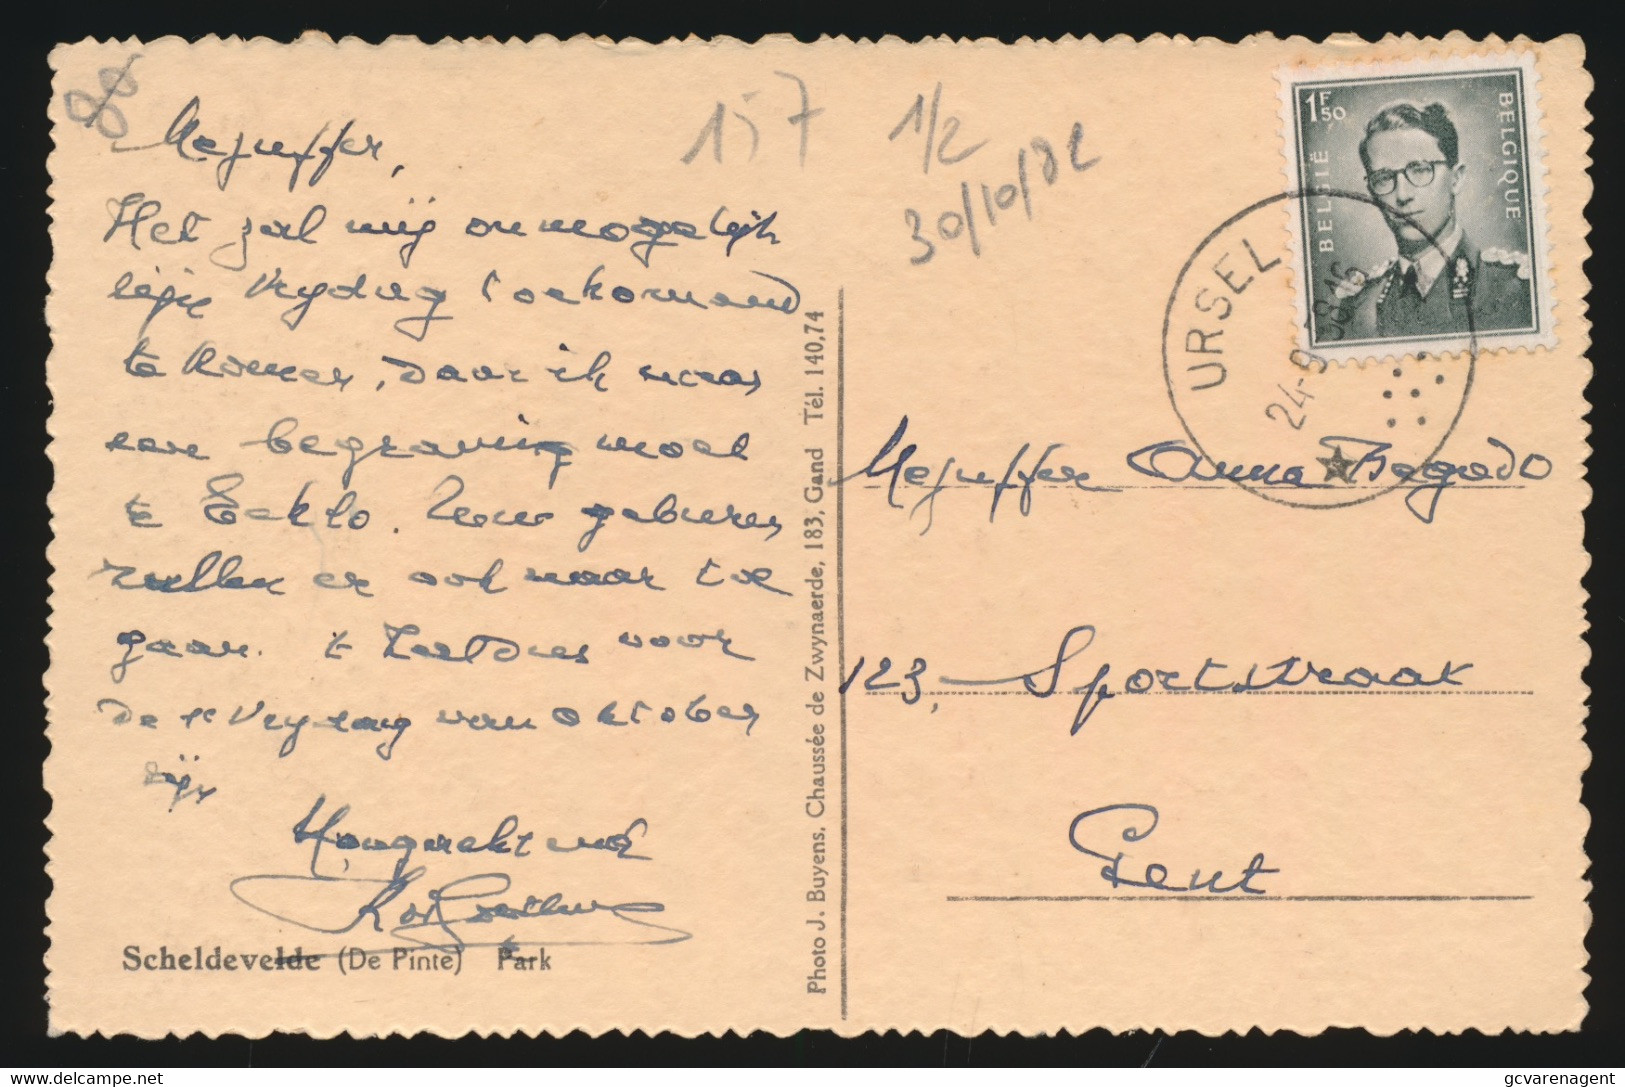 157
1/2
30/10/82
Mejuffer,
Het zal mij onmogelijk
zijn Vrijdag toekomend
te komen, daar ik naar
een begraving moet
te Eeklo. Mijn geburen
zullen er ook naar toe
gaan. 't Zal dus voor
de 1e Vrijdag van oktober
zijn
Hoogachtend
Scheldevelde (De Pinte) Park
Photo J. Buyens, Chaussée de Zwynaerde, 183, Gand Tél. 140,74
1F50
BELGIË
BELGIQUE
URSEL
24-9
Mejuffer Anna Begodo
123, Sportstraat
Gent
gcvarenagent